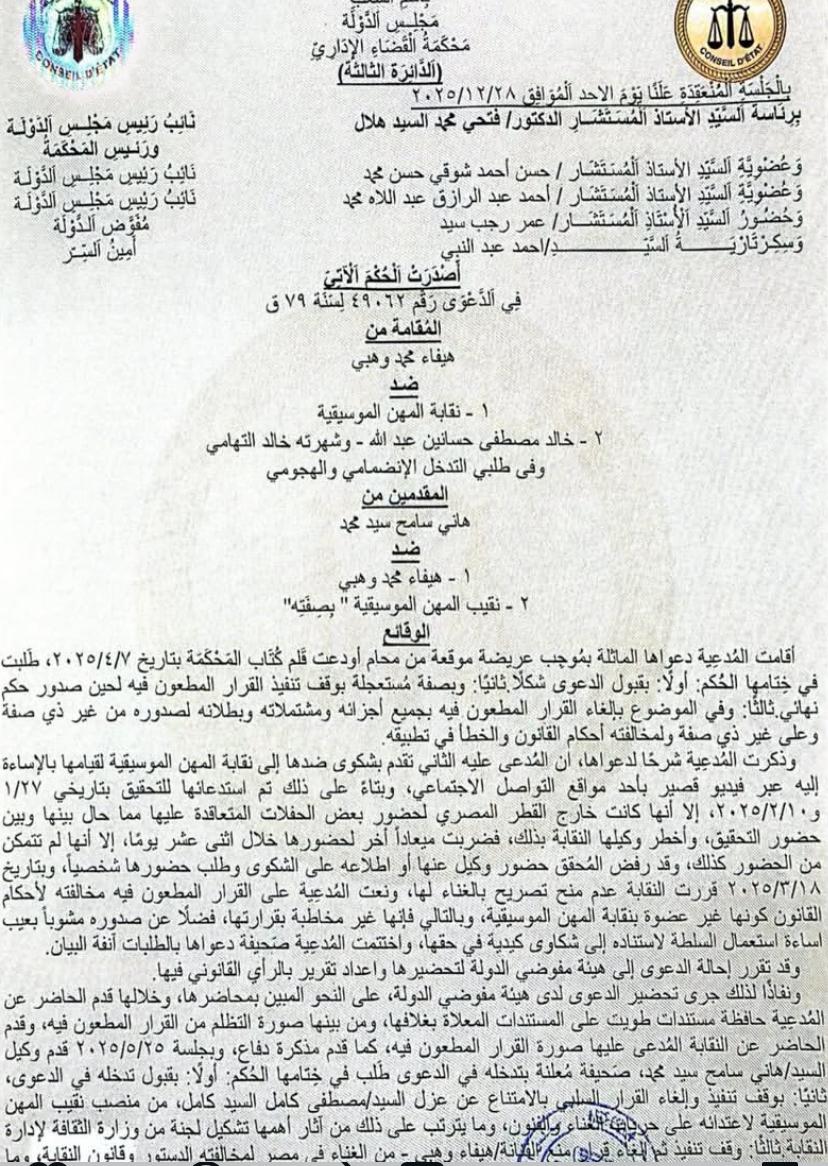 بِاسْمِ الشَّعْبِ
مَجْلِسِ الدَّوْلَة
مَحْكَمَةُ الْقَضَاءِ الإِدَارِيِّ
(الدَّائِرَة الثالثة)
CONSEIL D'ÉTAT
CONSEIL D'ÉTAT
بِالْجَلْسَةِ الْمُنْعَقِدَةِ عَلَنًا يَوْمَ الاحد الْمُوَافِق ٢٠٢٥/١٢/٢٨
بِرِئَاسَةِ السَّيِّدِ الأستَاذِ الْمُسْتَشَارِ الدكتور/ فتحي محمد السيد هلال نَائِبُ رَئِيسِ مَجْلِسِ الدَّوْلَة
وَرَئِيسِ المَحْكَمَةُ
وَعُضْوِيَّةِ السَّيِّدِ الأستَاذِ الْمُسْتَشَار / حسن أحمد شوقي حسن محمد نَائِبُ رَئِيسِ مَجْلِسِ الدَّوْلَة
وَعُضْوِيَّةِ السَّيِّدِ الأستَاذِ الْمُسْتَشَار / أحمد عبد الرازق عبد اللاه محمد نَائِبُ رَئِيسِ مَجْلِسِ الدَّوْلَة
وَحُضُورُ السَّيِّدِ الْأُسْتَاذِ الْمُسْتَشَار/ عمر رجب سيد مُفَوَّضِ الدَّوْلَة
وَسِكِرْتَارْيَـــةُ السَّيِّـــــدِ/احمد عبد النبي أَمِينُ السِّرّ
أَصْدَرَتْ الْحُكْمَ الْآتِيَ
فِي الدَّعْوَى رَقْم ٤٩٠٦٢ لِسَنَة ٧٩ ق
المُقامة من
هيفاء محمد وهبي
ضد
١ - نقابة المهن الموسيقية
٢ - خالد مصطفى حسانين عبد الله - وشهرته خالد التهامي
وفى طلبي التدخل الإنضمامي والهجومي
المقدمين من
هاني سامح سيد محمد
ضد
١ - هيفاء محمد وهبي
٢ - نقيب المهن الموسيقية " بِصِفَتِه"
الوقائع
أقامت المُدعِية دعواها الماثلة بمُوجب عريضة موقعة من محام أودعت قلم كُتَّاب المَحْكَمَة بتاريخ ٢٠٢٥/٤/٧، طَلبت
في خِتامها الحُكم: أولًا: بقبول الدعوى شكلًا. ثانيًا: وبصفة مُستعجلة بوقف تنفيذ القرار المطعون فيه لحين صدور حكم
نهائي. ثالثًا: وفي الموضوع بإلغاء القرار المطعون فيه بجميع أجزائه ومشتملاته وبطلانه لصدوره من غير ذي صفة
وعلى غير ذي صفة ولمخالفته أحكام القانون والخطأ في تطبيقه.
وذكرت المُدعِية شرحًا لدعواها، أن المُدعى عليه الثاني تقدم بشكوى ضدها إلى نقابة المهن الموسيقية لقيامها بالإساءة
إليه عبر فيديو قصير بأحد مواقع التواصل الاجتماعي، وبناءً على ذلك تم استدعائها للتحقيق بتاريخي ١/٢٧
و٢٠٢٥/٢/١٠، إلا أنها كانت خارج القطر المصري لحضور بعض الحفلات المتعاقدة عليها مما حال بينها وبين
حضور التحقيق، وأخطر وكيلها النقابة بذلك، فضربت ميعاداً أخر لحضورها خلال اثنى عشر يومًا، إلا أنها لم تتمكن
من الحضور كذلك، وقد رفض المُحقق حضور وكيل عنها أو اطلاعه على الشكوى وطلب حضورها شخصياً، وبتاريخ
٢٠٢٥/٣/١٨ قررت النقابة عدم منح تصريح بالغناء لها، ونعت المُدعِية على القرار المطعون فيه مخالفته لأحكام
القانون كونها غير عضوة بنقابة المهن الموسيقية، وبالتالي فإنها غير مخاطبة بقرارتها، فضلًا عن صدوره مشوباً بعيب
اساءة استعمال السلطة لاستناده إلى شكاوى كيدية في حقها، واختتمت المُدعِية صَحيفة دعواها بالطلبات آنفة البيان.
وقد تقرر إحالة الدعوى إلى هيئة مفوضي الدولة لتحضيرها واعداد تقرير بالرأي القانوني فيها.
ونفاذًا لذلك جرى تحضير الدعوى لدى هيئة مفوضي الدولة، على النحو المبين بمحاضرها، وخلالها قدم الحاضر عن
المُدعِية حافظة مستندات طويت على المستندات المعلاة بغلافها، ومن بينها صورة التظلم من القرار المطعون فيه، وقدم
الحاضر عن النقابة المُدعى عليها صورة القرار المطعون فيه، كما قدم مذكرة دفاع، وبجلسة ٢٠٢٥/٥/٢٥ قدم وكيل
السيد/هاني سامح سيد محمد، صحيفة مُعلنة بتدخله في الدعوى طَلب في خِتامها الحُكم: أولًا: بقبول تدخله في الدعوى،
ثانيًا: بوقف تنفيذ وإلغاء القرار السلبي بالامتناع عن عزل السيد/مصطفى كامل السيد كامل، من منصب نقيب المهن
الموسيقية لاعتدائه على حريات الغناء والفنون، وما يترتب على ذلك من آثار أهمها تشكيل لجنة من وزارة الثقافة لإدارة
النقابة. ثالثًا: وقف تنفيذ ثم إلغاء قرار منع الفنانة/هيفاء وهبي - من الغناء في مصر لمخالفته الدستور وقانون النقابة، وما